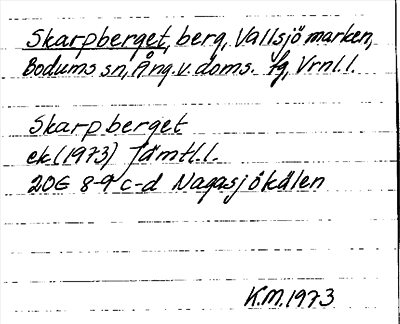 Skarpberget, berg, Vallsjömarken,
Bodums sn, Ång. v. doms. fg, Vrnl.l.
Skarpberget
ek (1973) Jämtl.l.
20G 8-9 c-d Nagasjökälen
K.M. 1973